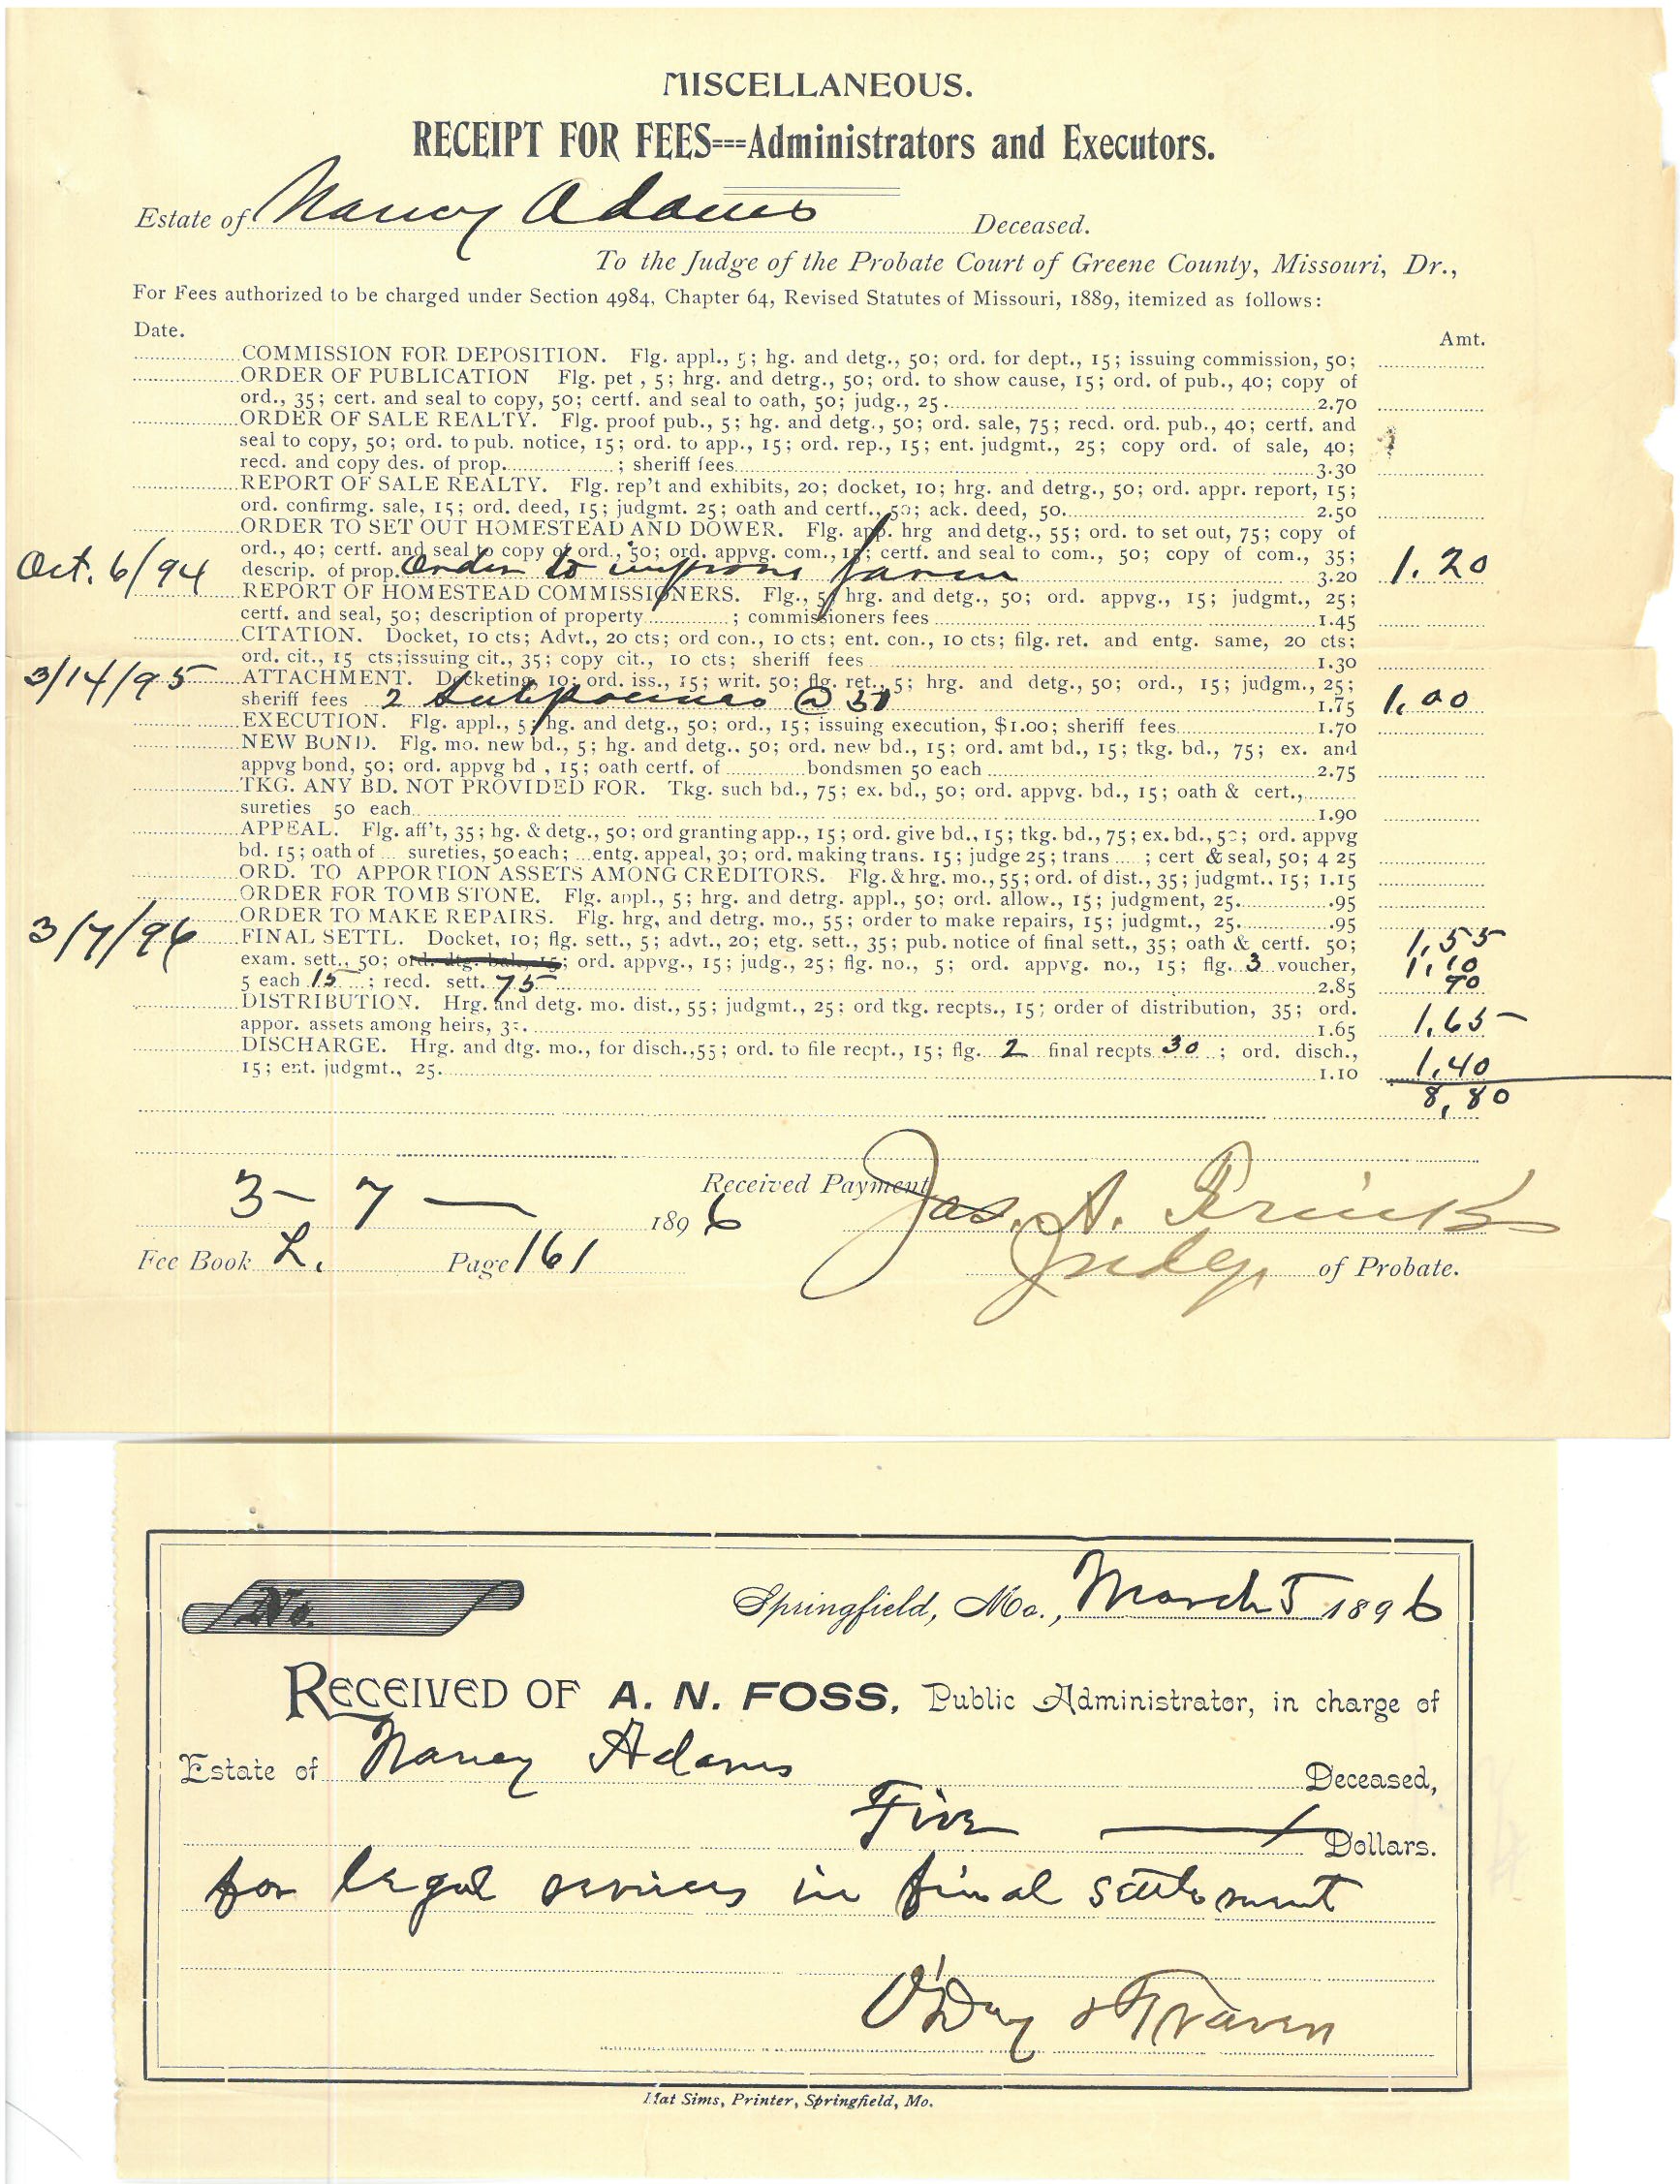 MISCELLANEOUS.
RECEIPT FOR FEES===Administrators and Executors.
Estate of Nancy Adams Deceased.
To the Judge of the Probate Court of Greene County, Missouri, Dr.,
For Fees authorized to be charged under Section 4984, Chapter 64, Revised Statutes of Missouri, 1889, itemized as follows:
Date. Amt.
COMMISSION FOR DEPOSITION. Flg. appl., 5; hg. and detg., 50; ord. for dept., 15; issuing commission, 50;
ORDER OF PUBLICATION Flg. pet , 5; hrg. and detrg., 50; ord. to show cause, 15; ord. of pub., 40; copy of
ord., 35; cert. and seal to copy, 50; certf. and seal to oath, 50; judg., 25 2.70
ORDER OF SALE REALTY. Flg. proof pub., 5; hg. and detg., 50; ord. sale, 75; recd. ord. pub., 40; certf. and
seal to copy, 50; ord. to pub. notice, 15; ord. to app., 15; ord. rep., 15; ent. judgmt., 25; copy ord. of sale, 40;
recd. and copy des. of prop. ; sheriff fees 3.30
REPORT OF SALE REALTY. Flg. rep't and exhibits, 20; docket, 10; hrg. and detrg., 50; ord. appr. report, 15;
ord. confirmg. sale, 15; ord. deed, 15; judgmt. 25; oath and certf., 50; ack. deed, 50. 2.50
ORDER TO SET OUT HOMESTEAD AND DOWER. Flg. app. hrg and detg., 55; ord. to set out, 75; copy of
ord., 40; certf. and seal to copy of ord., 50; ord. appvg. com., 15; certf. and seal to com., 50; copy of com., 35;
Oct. 6/94 descrip. of prop. Order to farm 3.20 1.20
REPORT OF HOMESTEAD COMMISSIONERS. Flg., 5; hrg. and detg., 50; ord. appvg., 15; judgmt., 25;
certf. and seal, 50; description of property ; commissioners fees 1.45
CITATION. Docket, 10 cts; Advt., 20 cts; ord con., 10 cts; ent. con., 10 cts; filg. ret. and entg. same, 20 cts;
ord. cit., 15 cts; issuing cit., 35; copy cit., 10 cts; sheriff fees 1.30
3/14/95 ATTACHMENT. Docketing, 10; ord. iss., 15; writ. 50; flg. ret., 5; hrg. and detg., 50; ord., 15; judgm., 25;
sheriff fees 2 Subpoenas @ 50 1.75 1.00
EXECUTION. Flg. appl., 5; hg. and detg., 50; ord., 15; issuing execution, $1.00; sheriff fees 1.70
NEW BOND. Flg. mo. new bd., 5; hg. and detg.. 50; ord. new bd., 15; ord. amt bd., 15; tkg. bd., 75; ex. and
appvg bond, 50; ord. appvg bd , 15; oath certf. of bondsmen 50 each 2.75
TKG. ANY BD. NOT PROVIDED FOR. Tkg. such bd., 75; ex. bd., 50; ord. appvg. bd., 15; oath & cert.,
sureties 50 each 1.90
APPEAL. Flg. aff't, 35; hg. & detg., 50; ord granting app., 15; ord. give bd., 15; tkg. bd., 75; ex. bd., 50; ord. appvg
bd. 15; oath of ... sureties, 50 each; ...entg. appeal, 30; ord. making trans. 15; judge 25; trans ..... ; cert & seal, 50; 4 25
ORD. TO APPORTION ASSETS AMONG CREDITORS. Flg. & hrg. mo., 55; ord. of dist., 35; judgmt.. 15; 1.15
ORDER FOR TOMB STONE. Flg. appl., 5; hrg. and detrg. appl., 50; ord. allow., 15; judgment, 25. .95
ORDER TO MAKE REPAIRS. Flg. hrg, and detrg. mo., 55; order to make repairs, 15; judgmt., 25. .95
3/7/96 FINAL SETTL. Docket, 10; flg. sett., 5; advt., 20; etg. sett., 35; pub. notice of final sett., 35; oath & certf. 50; 1,55
exam. sett., 50; ord. dtg. bal., 15; ord. appvg., 15; judg., 25; flg. no., 5; ord. appvg. no., 15; flg. 3 voucher, 1,10
5 each 15 ; recd. sett. 75 2.85 90
DISTRIBUTION. Hrg. and detg. mo. dist., 55; judgmt., 25; ord tkg. recpts., 15; order of distribution, 35; ord.
appor. assets among heirs, 35. 1.65 1,65
DISCHARGE. Hrg. and dtg. mo., for disch., 55; ord. to file recpt., 15; flg. 2 final recpts 30 ; ord. disch.,
15; ent. judgmt., 25. 1.10 1,40
8,80
Received Payment
3 - 7 — 1896 Jas. A.
Fee Book L. Page 161 Judge of Probate.
No. Springfield, Mo., March 5 1896
RECEIVED OF A. N. FOSS, Public Administrator, in charge of
Estate of Nancy Adams Deceased,
Five Dollars.
for legal services in final settlement
O'Day &
Mat Sims, Printer, Springfield, Mo.